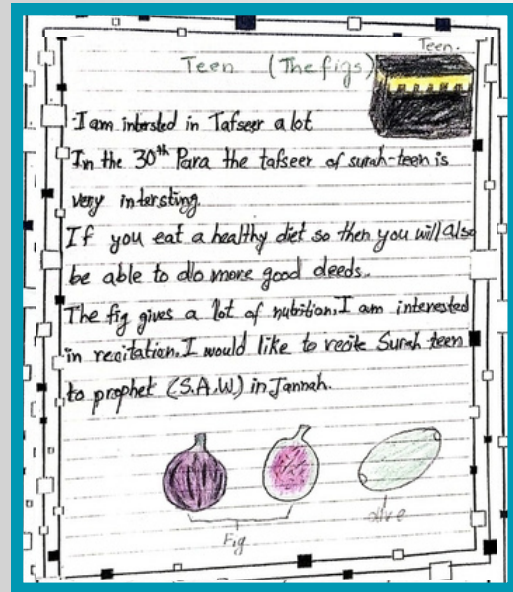 Teen.
Teen (The figs)
I am intersted in Tafseer a lot
In the 30th Para the tafseer of surah-teen is
very intersting.
If you eat a healthy diet so then you will also
be able to do more good deeds.
The fig gives a lot of nutrition. I am interested
in recitation. I would like to recite Surah teen
to prophet (S.A.W) in Jannah.
olive
Fig